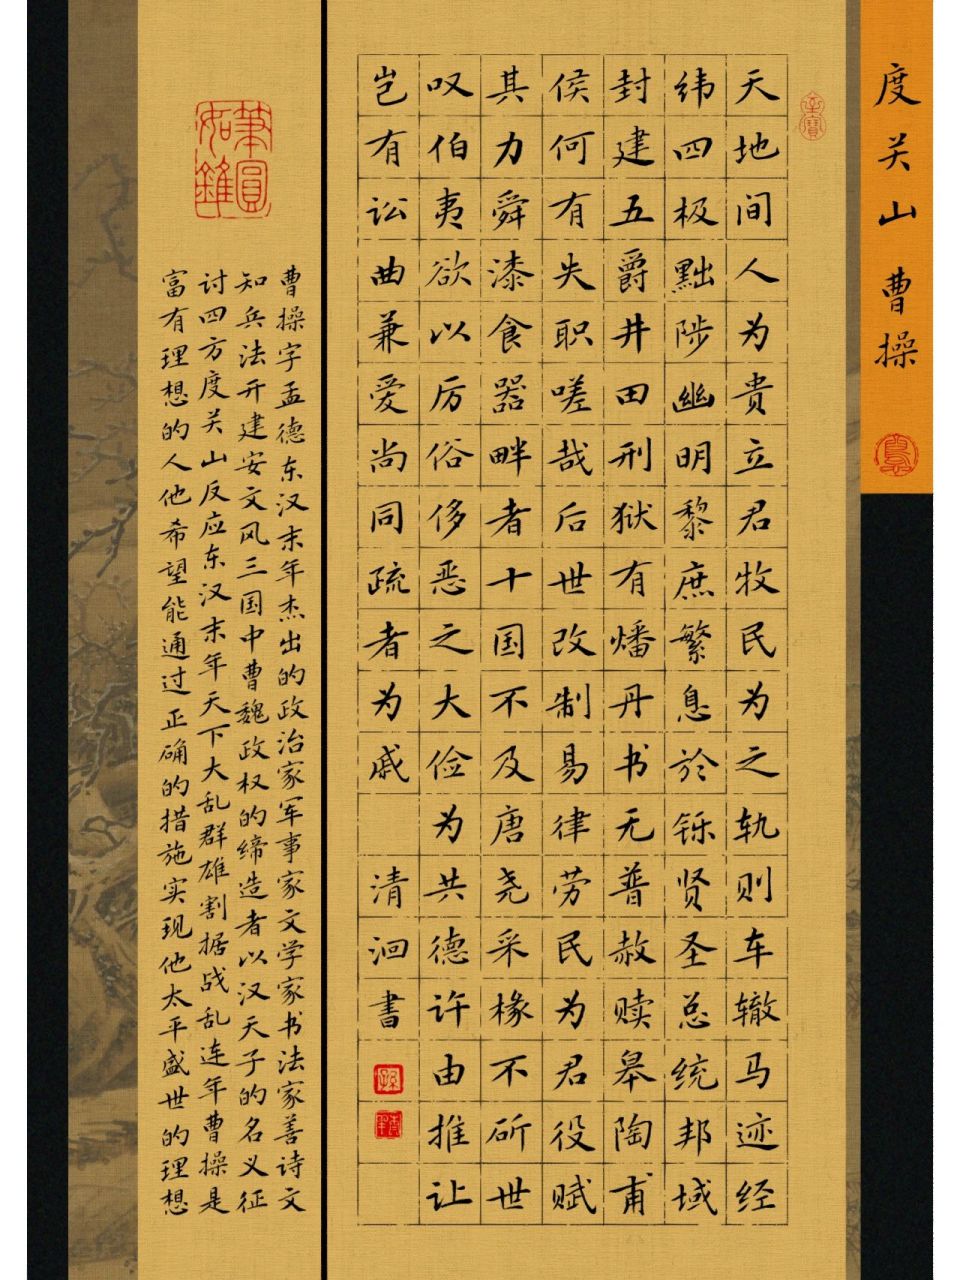 度关山 曹操
至寶
天地间人为贵立君牧民为之轨则车辙马迹经
纬四极黜陟幽明黎庶繁息於铄贤圣总统邦域
封建五爵井田刑狱有燔丹书无普赦赎皋陶甫
侯何有失职嗟哉后世改制易律劳民为君役赋
其力舜漆食器畔者十国不及唐尧采椽不斫世
叹伯夷欲以厉俗侈恶之大俭为共德许由推让
岂有讼曲兼爱尚同疏者为戚 清洄書
曹操字孟德东汉末年杰出的政治家军事家文学家书法家善诗文
知兵法开建安文风三国中曹魏政权的缔造者以汉天子的名义征
讨四方度关山反应东汉末年天下大乱群雄割据战乱连年曹操是
富有理想的人他希望能通过正确的措施实现他太平盛世的理想
筆圓
如錐